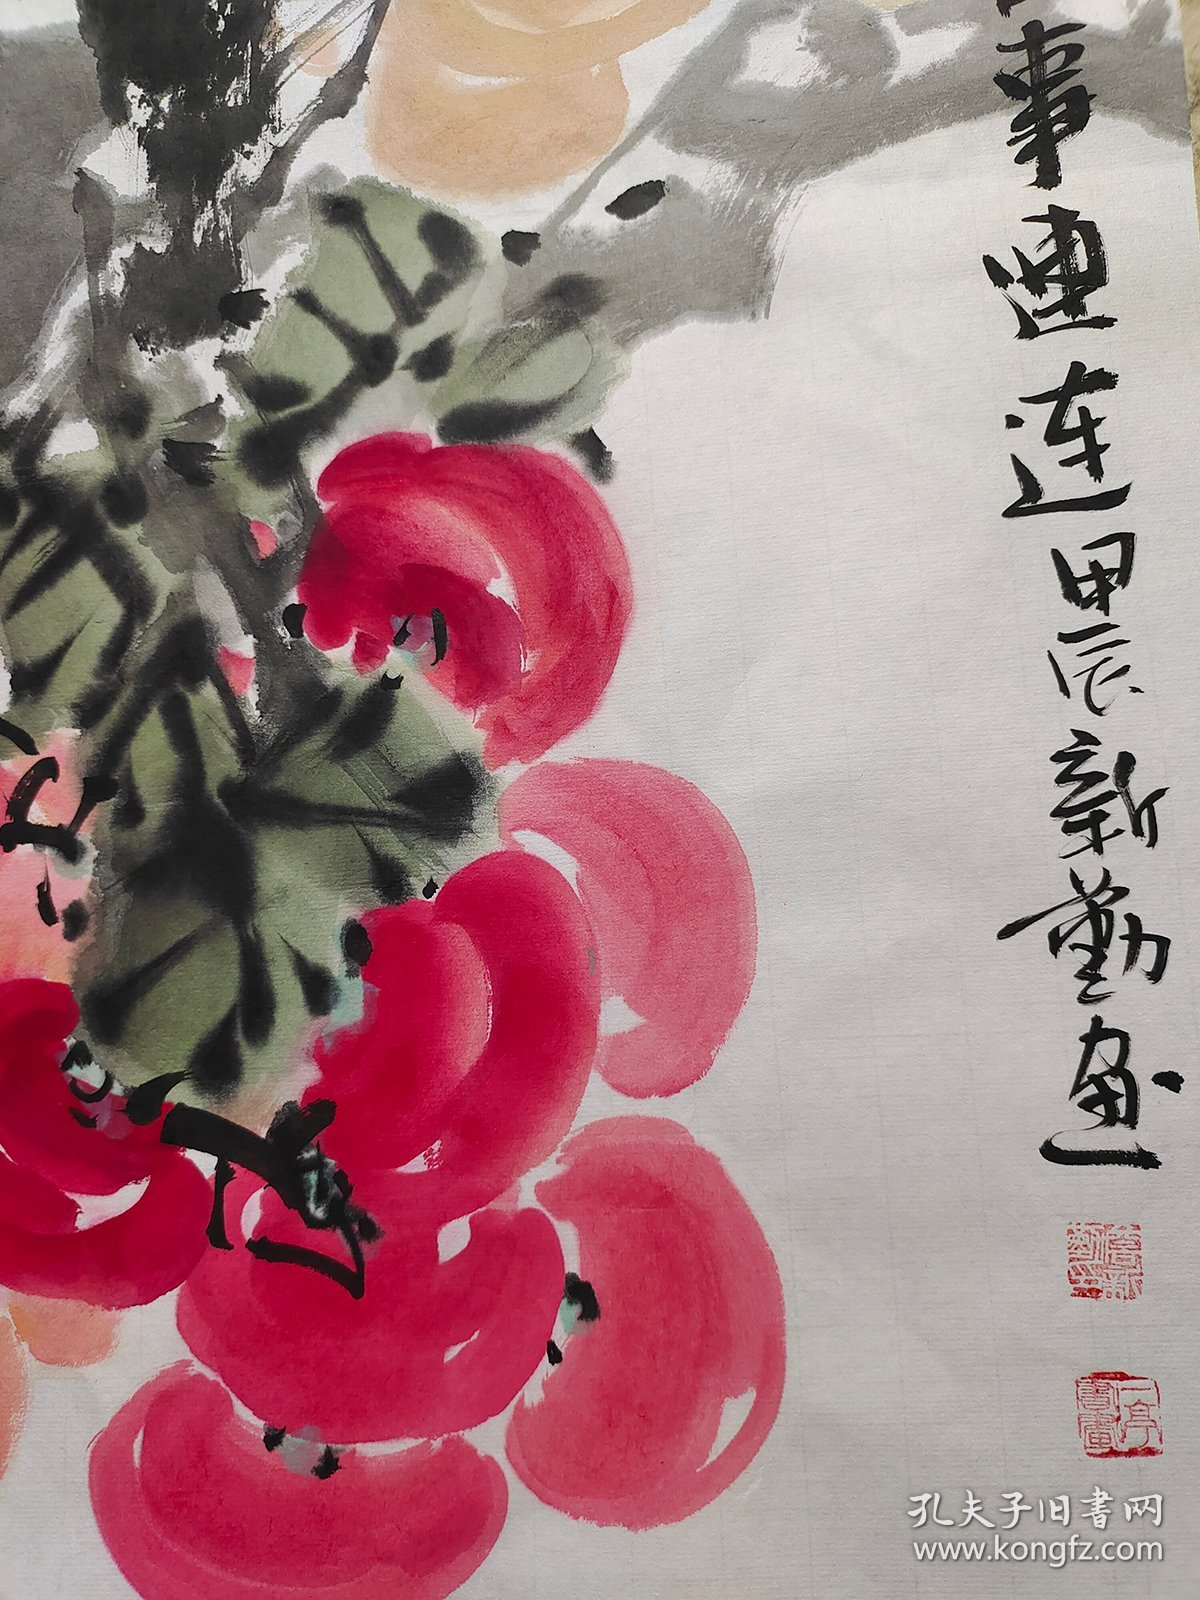 事連连甲辰新勤画
孔夫子旧书网
www.kongfz.com